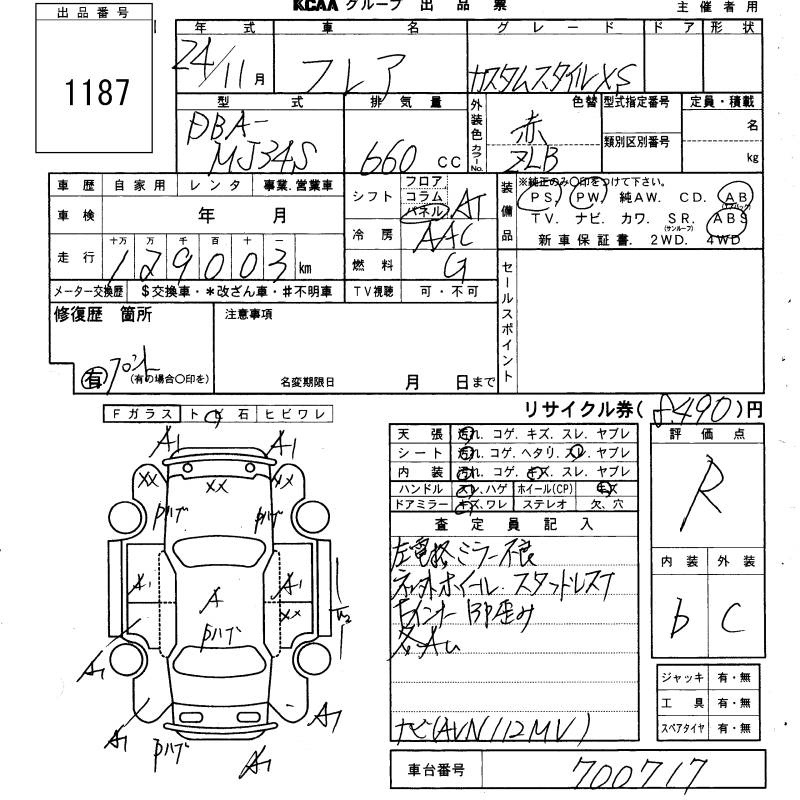 KCAA グループ 出品票
主催者用
出品番号
1187
年式 車名 グレード ドア 形状
24/11月 フレア カスタムスタイルXS
型式 排気量 外装色 カラーNo. 色替 型式指定番号 定員・積載
DBA-
MJ34S
660 cc
赤
ZLB
類別区別番号
名
kg
車歴 自家用 レンタ 事業.営業車
車検 年 月
走行 十万 万 千 百 十 一
129003 km
メーター交換歴 $交換車・*改ざん車・#不明車
シフト フロア コラム パネル AT
冷房 AAC
燃料 G
TV視聴 可・不可
装備品
※純正のみ〇印をつけて下さい。
PS. PW. 純AW. CD. AB(エアバック)
TV. ナビ. カワ. SR.(サンルーフ) ABS
新車保証書. 2WD. 4WD
セールスポイント
修復歴 箇所
有 フロント
(有の場合〇印を)
注意事項
名変期限日 月 日まで
リサイクル券( 8,490 )円
Fガラス トビ石 ヒビワレ
天張 汚れ. コゲ. キズ. スレ. ヤブレ
シート 汚れ. コゲ. ヘタリ. スレ. ヤブレ
内装 汚れ. コゲ. キズ. スレ. ヤブレ
ハンドル スレ.ハゲ ホイール(CP) キズ
ドアミラー キズ.ワレ ステレオ 欠.穴
評価点
R
内装 外装
b C
査定員記入
左電格ミラー不良
ネットホイール スタッドレスT
各AU
ナビ(AVN112MV)
A1 A1
XX XX XX
Pハゲ Pハゲ
A1 A A1
XX
Pハゲ
A1 A1
A1 Pハゲ A1
ジャッキ 有・無
工具 有・無
スペアタイヤ 有・無
車台番号 700717